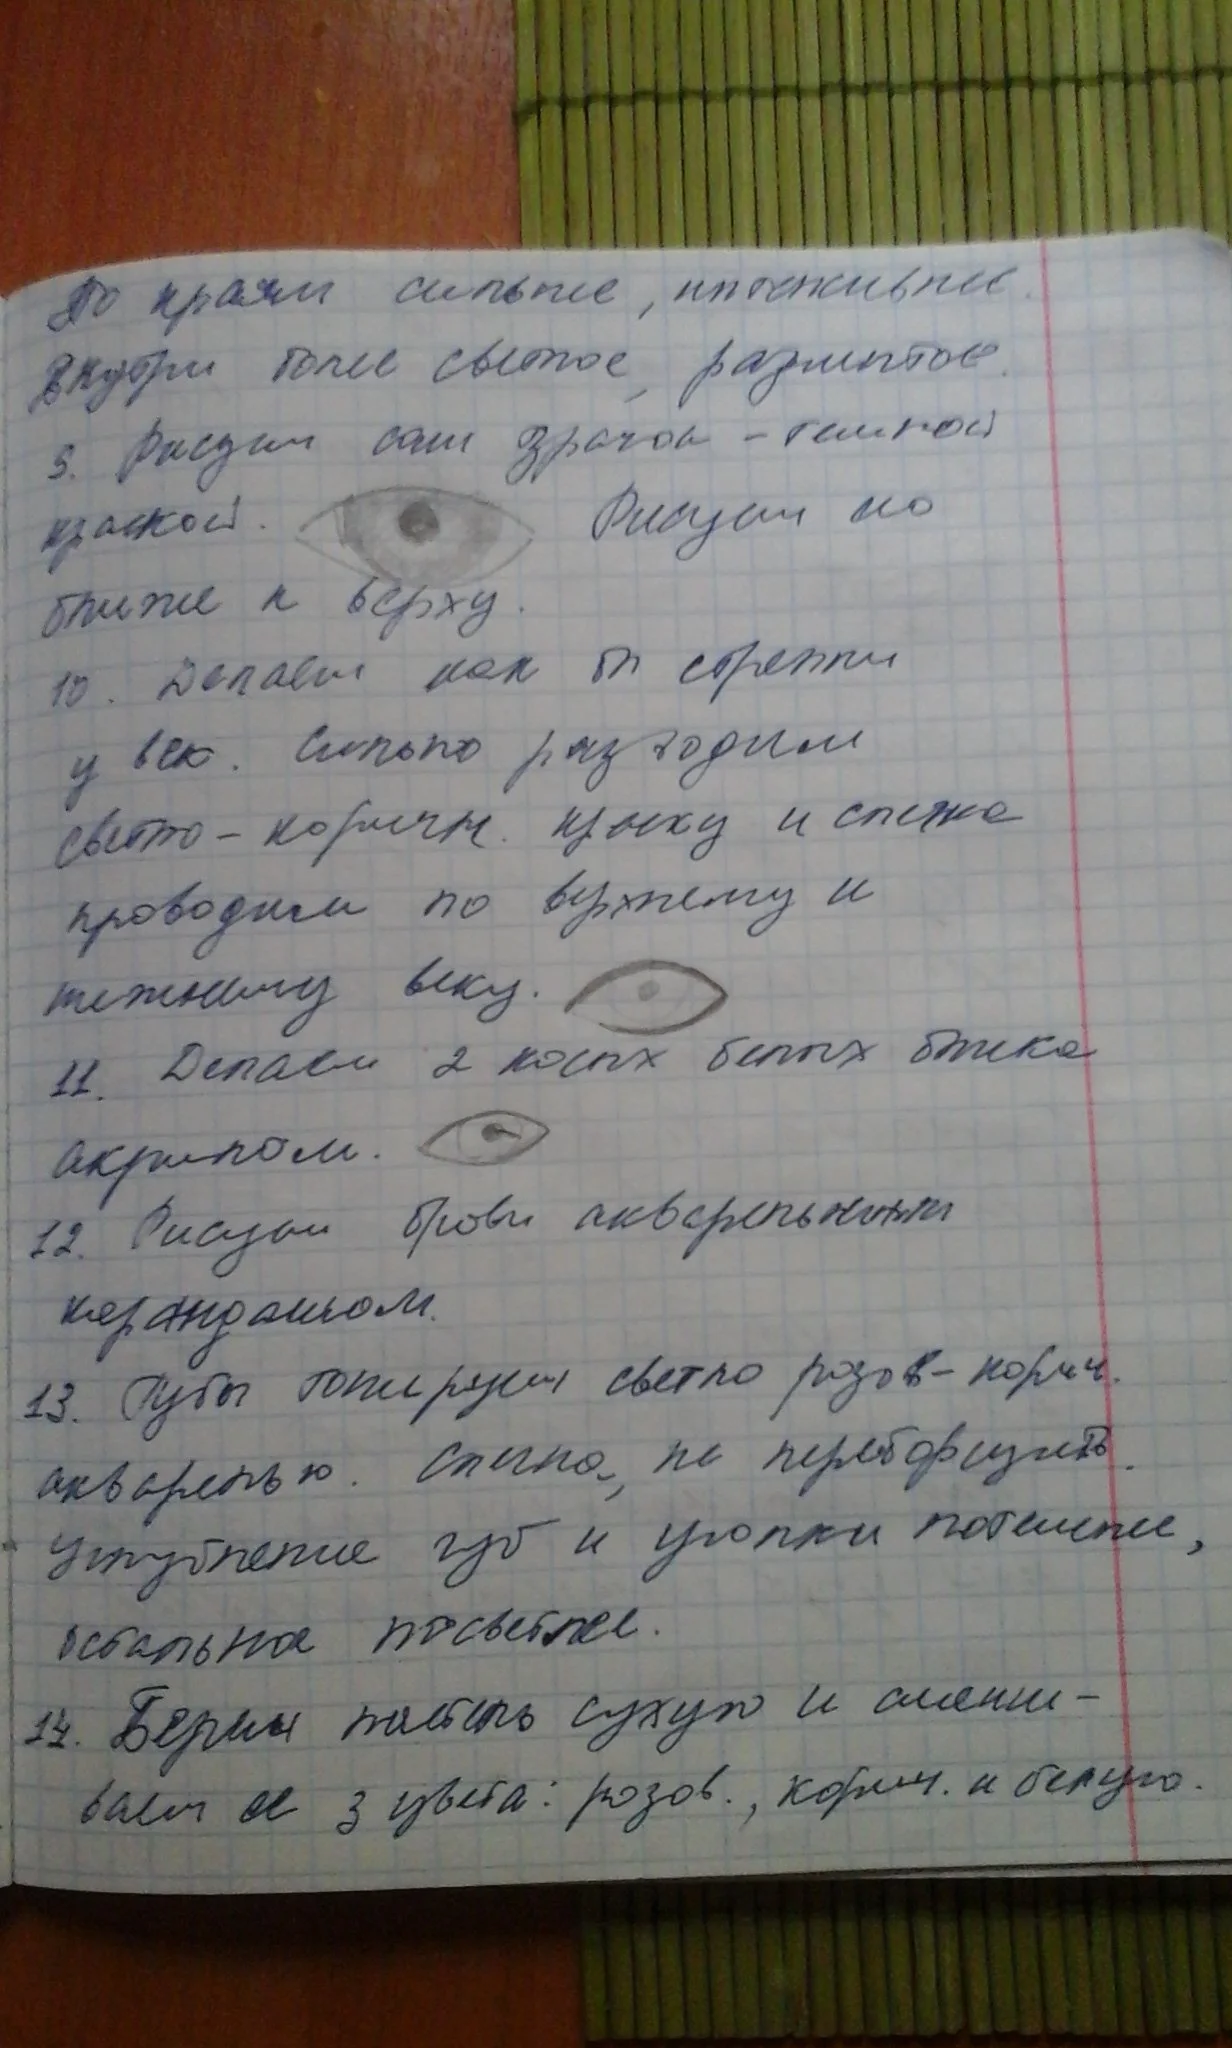 По краям сильнее, интенсивнее.
Внутри более светлое, размытое.
9. Рисуем сам зрачок - темной
краской. Рисуем но
ближе к верху.
10. Делаем как бы стрелки
у век. Сильно разводим
светло - коричн. краску и слегка
проводим по верхнему и
нижнему веку.
11. Делаем 2 косых белых блика
акрилом.
12. Рисуем брови акварельным
карандашом.
13. Губы тонируем светло розов - корич.
акварелью. Слегка, не переборщить.
Углубление губ и уголки потемнее,
остальное посветлее.
14. Берем пастель сухую и смеши-
ваем ее 3 цвета: розов., корич. и белую.